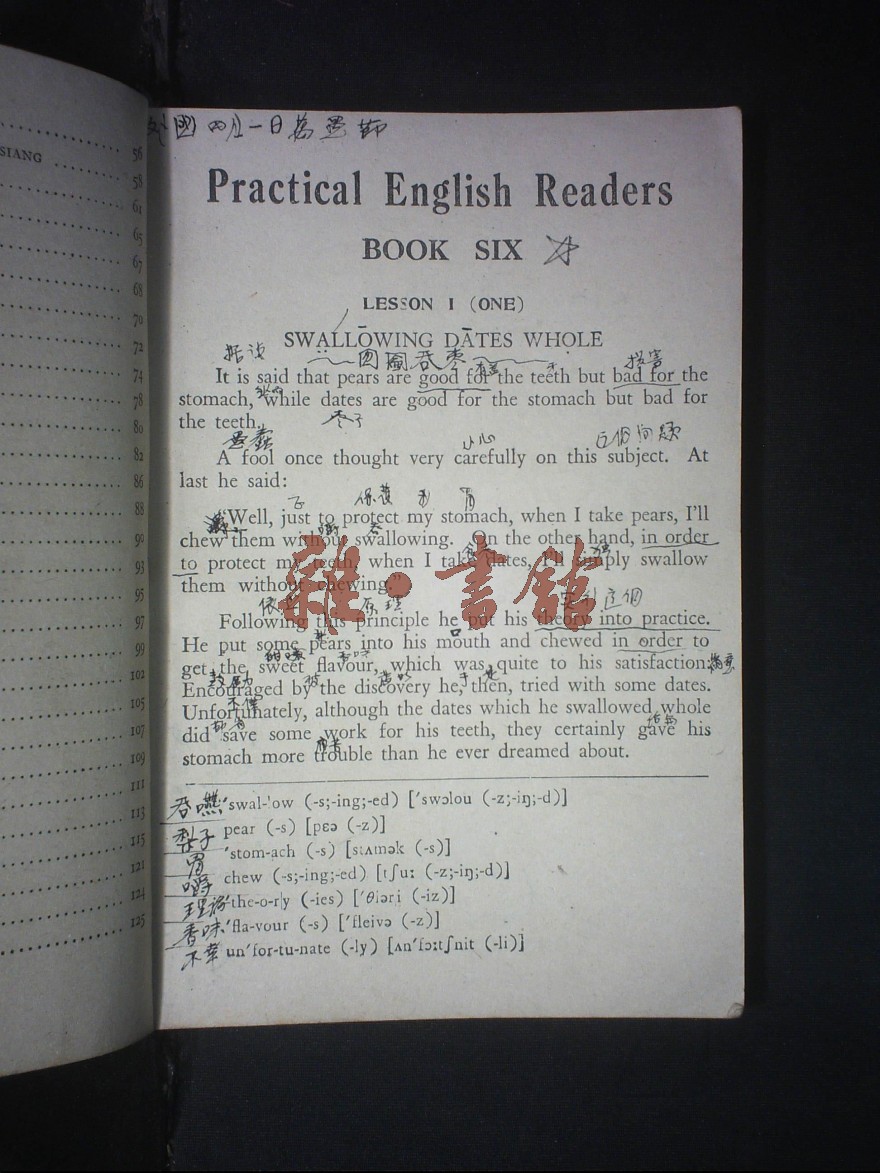 SIANG
56
58
61
65
67
68
70
72
74
78
80
82
86
88
90
93
95
97
99
102
105
107
109
111
113
115
121
124
125
國四月一日為愚節
Practical English Readers
BOOK SIX
LESSON 1 (ONE)
SWALLŌWING DĀTES WHOLE
囫圇吞棗
It is said that pears are good for the teeth but bad for the
stomach, while dates are good for the stomach but bad for
the teeth.
枣子
愚蠢
小心
A fool once thought very carefully on this subject. At
last he said:
保護
胃
"Well, just to protect my stomach, when I take pears, I'll
chew them without swallowing. On the other hand, in order
to protect my teeth, when I take dates, I'll simply swallow
them without chewing."
雜·書館
原理
Following this principle he put his theory into practice.
He put some pears into his mouth and chewed in order to
get the sweet flavour, which was quite to his satisfaction.
鼓励
Encouraged by the discovery he, then, tried with some dates.
Unfortunately, although the dates which he swallowed whole
did save some work for his teeth, they certainly gave his
stomach more trouble than he ever dreamed about.
吞嚥 'swal-'ow (-s;-ing;-ed) ['swɔlou (-z;-iŋ;-d)]
梨子 pear (-s) [pɛə (-z)]
胃 'stom-ach (-s) [stʌmək (-s)]
嚼 chew (-s;-ing;-ed) [tʃu: (-z;-iŋ;-d)]
理論 'the-o-ry (-ies) ['θiəri (-iz)]
香味 'fla-vour (-s) ['fleivə (-z)]
不幸 un'for-tu-nate (-ly) [ʌn'fɔ:tʃnit (-li)]